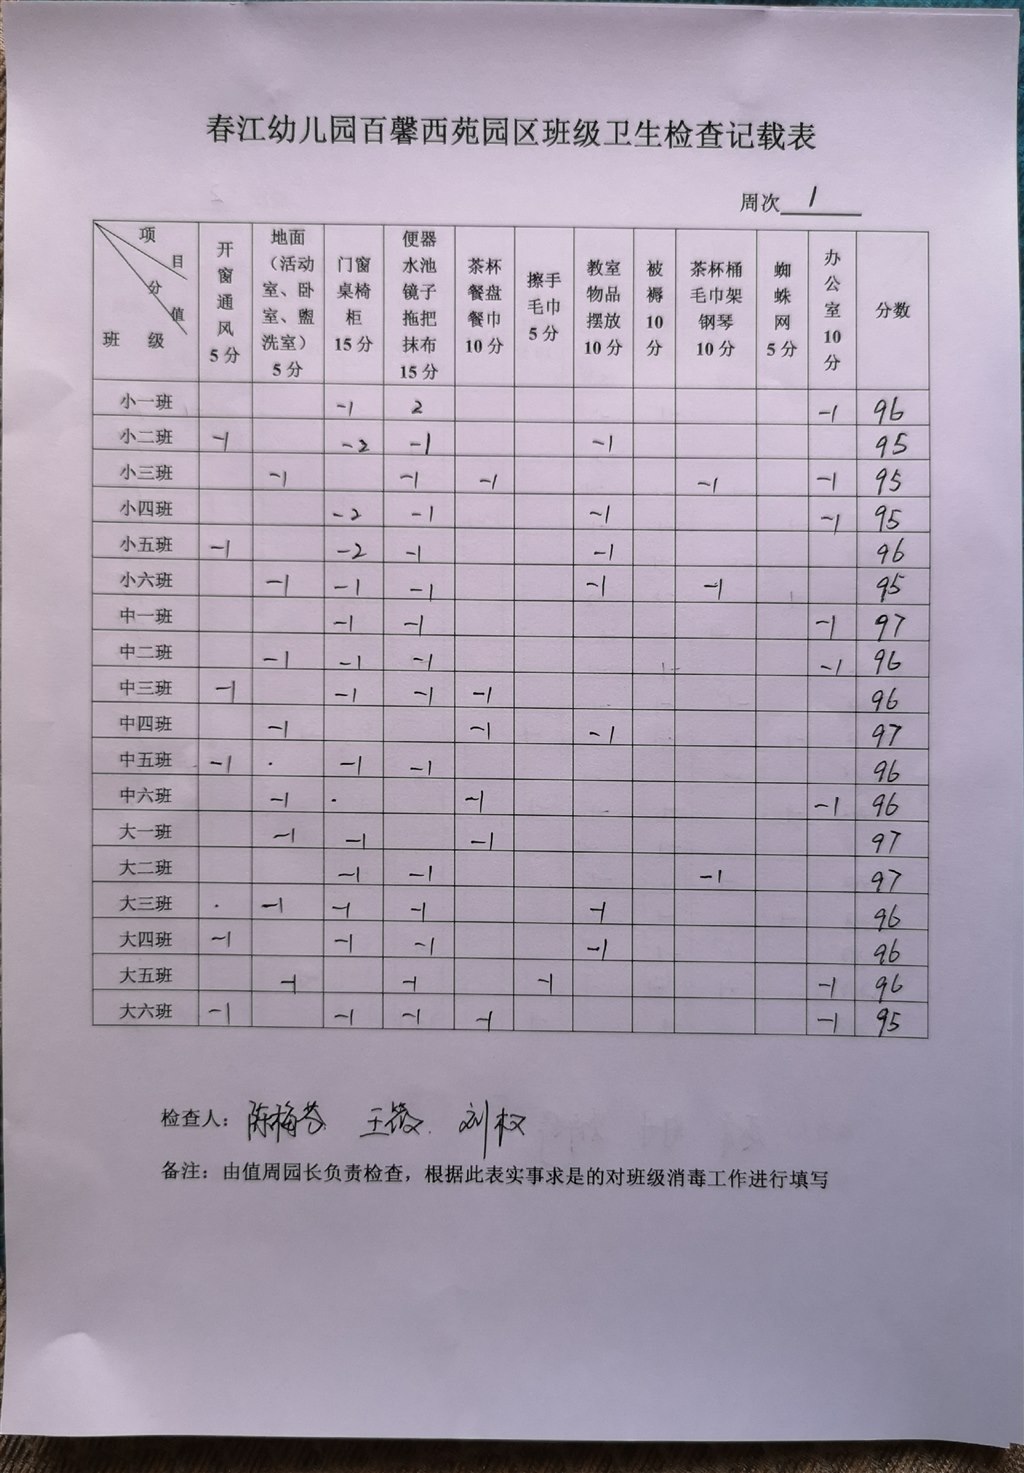 春江幼儿园百馨西苑园区班级卫生检查记载表
周次 1
项目 分值 班级 开窗通风5分 地面（活动室、卧室、盥洗室）5分 门窗桌椅柜15分 便器水池镜子拖把抹布15分 茶杯餐盘餐巾10分 擦手毛巾5分 教室物品摆放10分 被褥10分 茶杯桶毛巾架钢琴10分 蜘蛛网5分 办公室10分 分数
小一班 -1 2 -1 96
小二班 -1 -2 -1 -1 95
小三班 -1 -1 -1 -1 -1 95
小四班 -2 -1 -1 -1 95
小五班 -1 -2 -1 -1 96
小六班 -1 -1 -1 -1 -1 95
中一班 -1 -1 -1 97
中二班 -1 -1 -1 -1 96
中三班 -1 -1 -1 -1 96
中四班 -1 -1 -1 97
中五班 -1 -1 -1 96
中六班 -1 -1 -1 96
大一班 -1 -1 -1 97
大二班 -1 -1 -1 97
大三班 -1 -1 -1 -1 96
大四班 -1 -1 -1 -1 96
大五班 -1 -1 -1 -1 96
大六班 -1 -1 -1 -1 -1 95
检查人：陈梅芬 王 刘权
备注：由值周园长负责检查，根据此表实事求是的对班级消毒工作进行填写